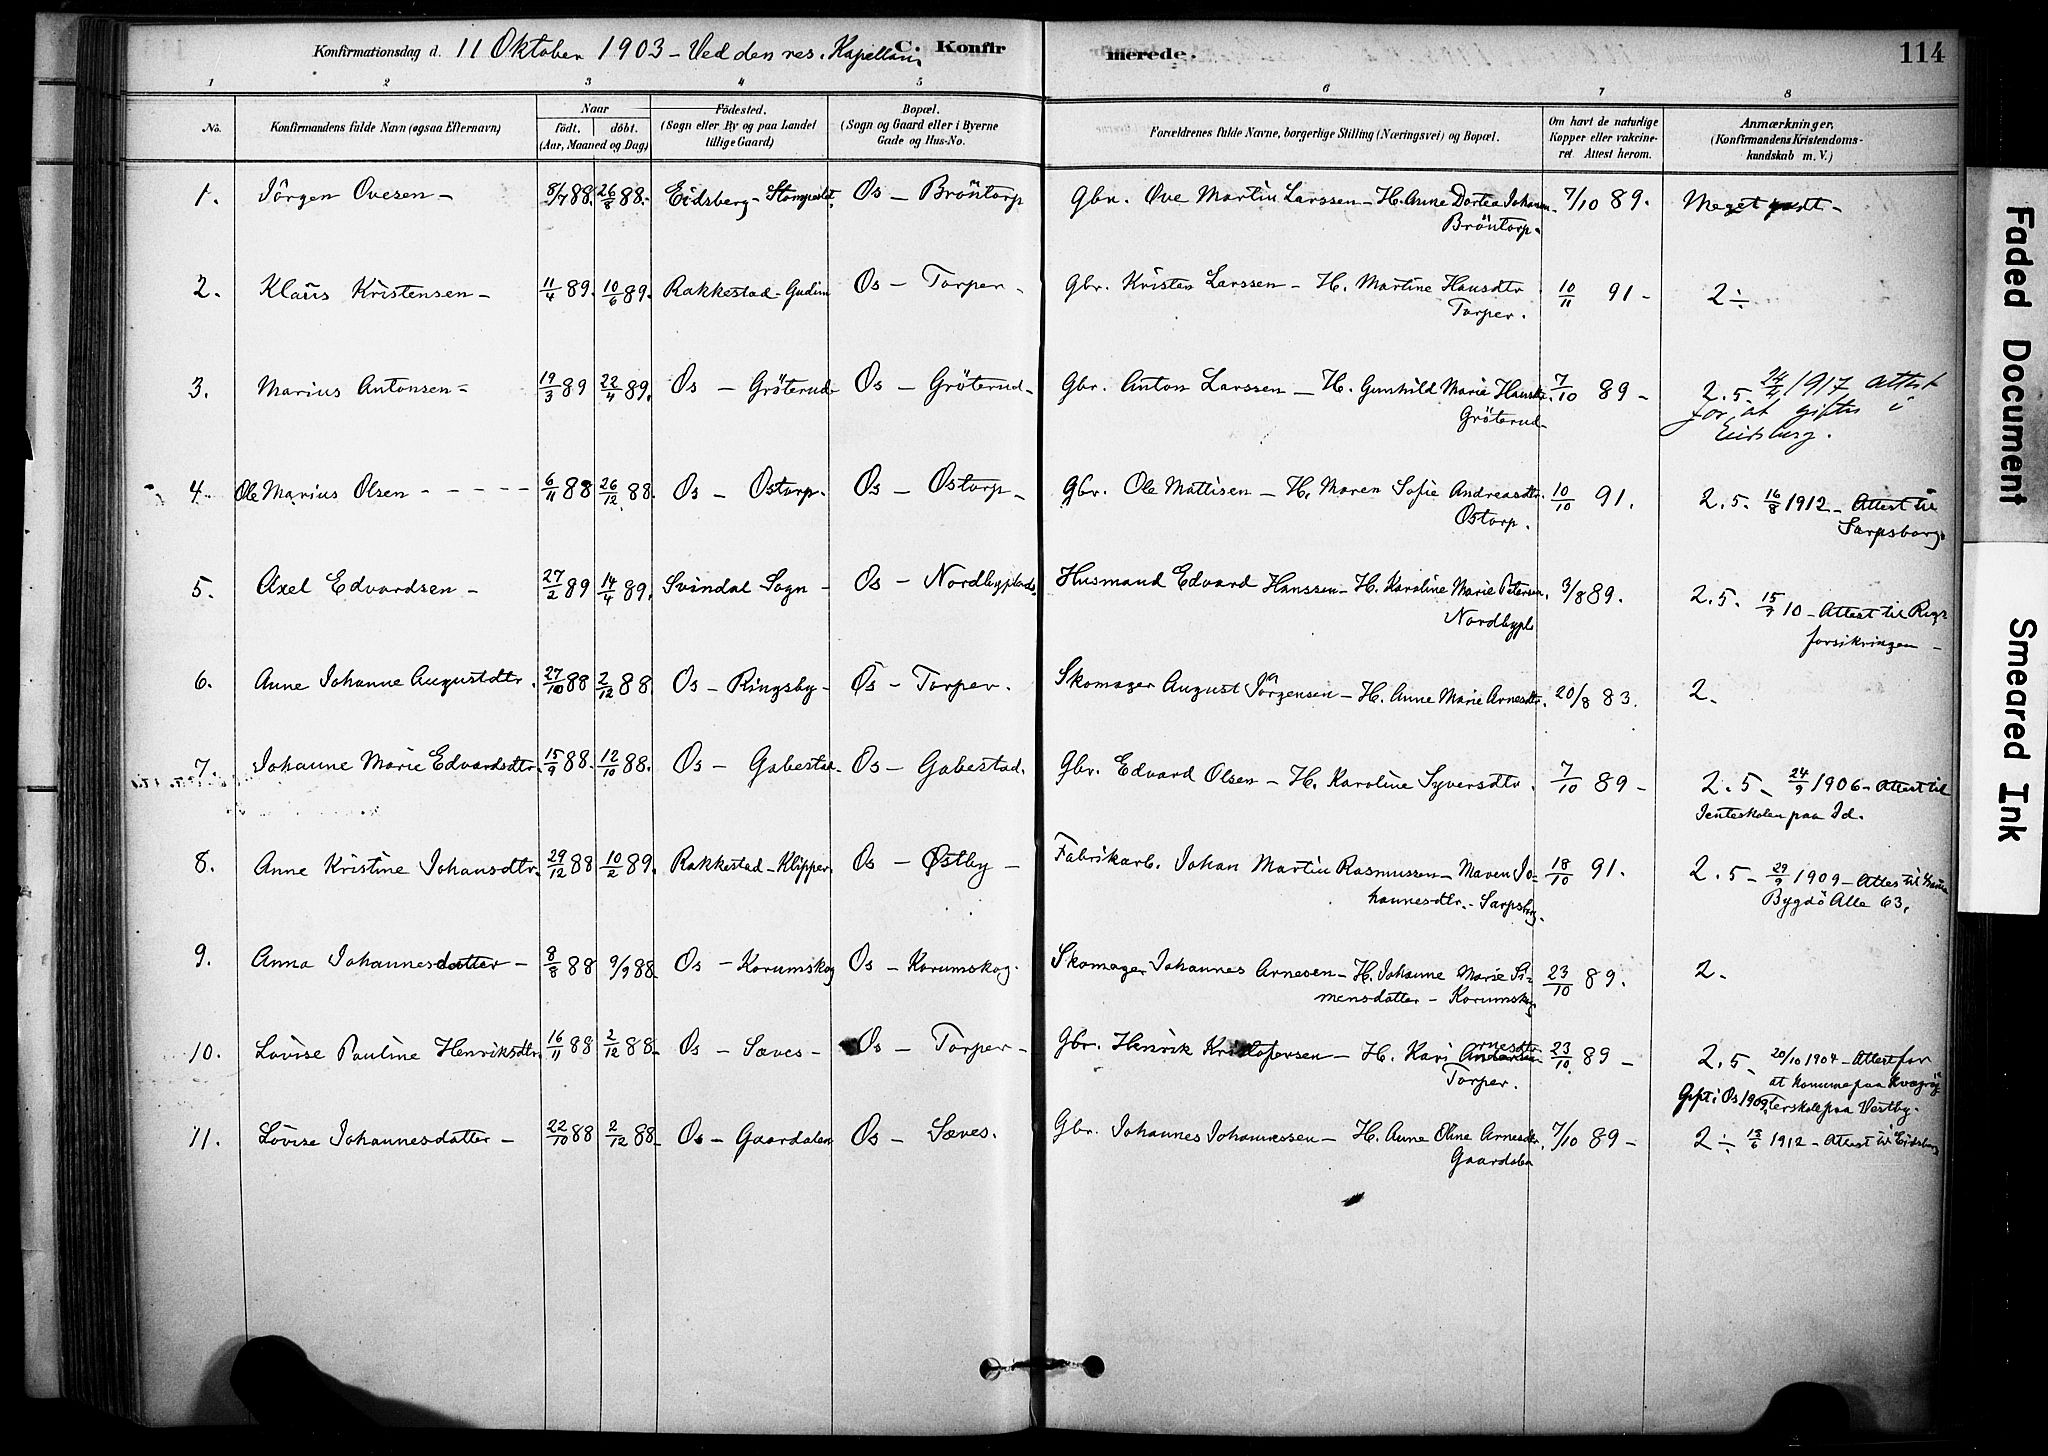 Konfirmationsdag d. 11 Oktober 1903 – Ved den res. Kapellan
C. Konfirmerede. 114
1 2 3 4 5 6 7 8
No. Konfirmandens fulde Navn (ogsaa Efternavn) Naar født. døbt. (Aar, Maaned og Dag) Fødested. (Sogn eller By og paa Landet tillige Gaard) Bopæl. (Sogn og Gaard eller i Byerne Gade og Hus-No. Forældrenes fulde Navne, borgerlige Stilling (Næringsvei) og Bopæl. Om havt de naturlige Kopper eller vakcineret Attest herom. Anmærkninger. (Konfirmandens Kristendomskundskab m. V.)
1. Jörgen Ovesen – 8/7 88. 26/8 88. Eidsberg – Os – Bröntorp Gbr. Ove Martin Larssen – H. Anne Dortea 7/10 89. Meget godt –
Bröntorp –
2. Klaus Kristensen – 11/4 89. 10/6 89. Rakkestad – Gudim Os – Torper – Gbr. Kristen Larssen – H. Martine Hansdtr 10/11 91 – 2 ÷
Torper.
3. Marius Antonsen – 19/3 89 22/4 89. Os – Gröterud Os – Gröterud – Gbr. Anton Larssen – H. Gunhild Marie Hansdtr. 7/10 89 – 2.5 – 24/4 1917 attest
Gröterud – for at giftes i
Eidsberg.
4. Ole Marius Olsen – – – – 6/11 88 26/12 88. Os – Ostorp. Os – Ostorp – Gbr. Ole Mattisen – H. Maren Sofie Andreasdtr. 10/10 91. 2.5. 16/8 1912 – Attest til
Ostorp. Sarpsborg.
5. Axel Edvardsen – 27/2 89 14/4 89. Svindal Sogn – Os – Nordbyplads Husmand Edvard Hanssen – H. Karoline Marie Petersen. 3/8 89. 2.5. 15/7 10 – Attest til Rigs
Nordbypl. forsikringen –
6. Anne Johanne Augustdtr. 27/10 88 2/12 88. Os – Ringsby – Os – Torper. Skomager August Jörgensen – H. Anne Marie Arnesdtr. 20/8 83. 2.
7. Johanne Marie Edvardsdtr. 15/9 88. 12/10 88. Os – Gabestad Os – Gabestad. Gbr. Edvard Olsen – H. Karoline Syversdtr. 7/10 89 – 2.5 – 24/9 1906 – Attest til
Jenteskolen paa Id.
8. Anne Kristine Johansdtr. 29/12 88 10/2 89. Rakkestad – Klipper. Os – Østby – Fabrikarb. Johan Martin Rasmussen – Maren Jo- 18/10 91. 2.5 – 29/9 1909 – Attest til
hannesdtr. – Sarpsbg. Bygdö Alle 63,
9. Anna Johannesdatter – 8/8 88 9/9 88. Os – Korumskog Os – Korumskog. Skomager Johannes Arnesen – H. Johanne Marie Si- 23/10 89. 2.
mensdatter – Korumskog
10. Lovise Pauline Henriksdtr. 16/11 88 2/12 88. Os – Sæves – Os – Torper – Gbr. Henrik Kristofersen – H. Kari Arnesdtr. 23/10 89 – 2.5 – 20/10 1904 – Attest for
Torper. at komme paa
Gift i Os 1909. paa Vestby.
11. Lovise Johannesdatter – 22/10 88 2/12 88. Os – Gaardalen Os – Sæves. Gbr. Johannes Johannessen – H. Anne Oline Arnesdtr. 7/10 89 – 2 ÷ 13/6 1912 – Attest til Eidsberg
Gaardalen
Faded Document
Smeared Ink